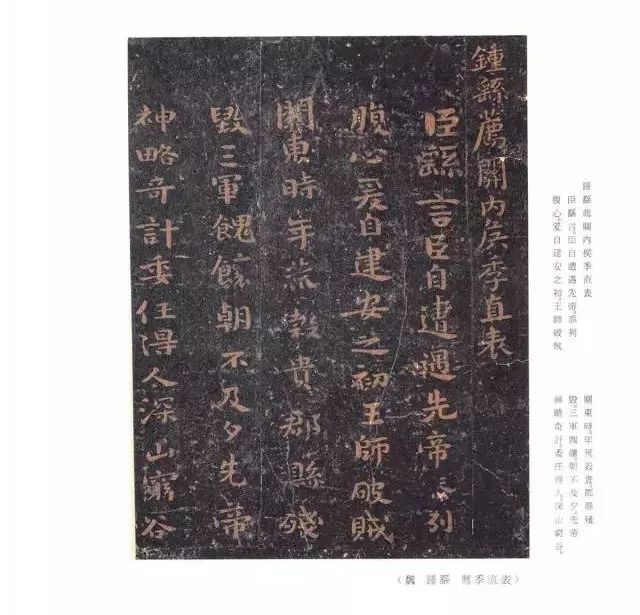 鍾繇薦關內侯季直表
臣繇言臣自遭遇先帝忝列
腹心爰自建安之初王師破賊
關東時年荒穀貴郡縣殘
毀三軍餽饟朝不及夕先帝
神略奇計委任得人深山窮谷
鍾繇薦關內侯季直表
臣繇言。臣自遭遇先帝。忝列
腹心。爰自建安之初。王師破賊
關東。時年荒穀貴。郡縣殘
毀。三軍餽饟。朝不及夕。先帝
神略奇計。委任得人。深山窮谷。
〈魏 鍾繇 薦季直表〉